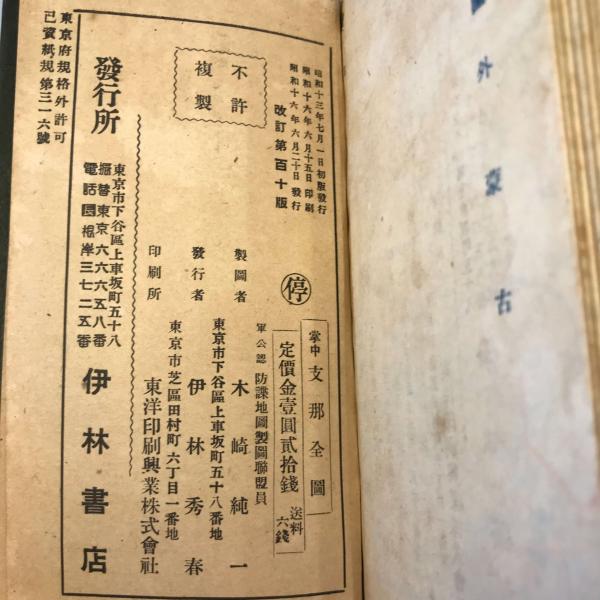 外蒙古
昭和十三年七月一日初版發行
昭和十六年六月十五日印刷
昭和十六年六月二十日發行
改訂第百十版
不許
複製
停
掌中支那全圖
定價金壹圓貳拾錢
送料
六錢
軍公認防諜地圖製圖聯盟員
製圖者 木崎純一
東京市下谷區上車坂町五十八番地
發行者 伊林秀春
東京市芝區田村町六丁目一番地
印刷所 東洋印刷興業株式會社
發行所
東京市下谷區上車坂町五十八
振替東京六六六五八番
電話根岸三七二五番
伊林書店
東京府規格外許可
己資紙規第三一六號